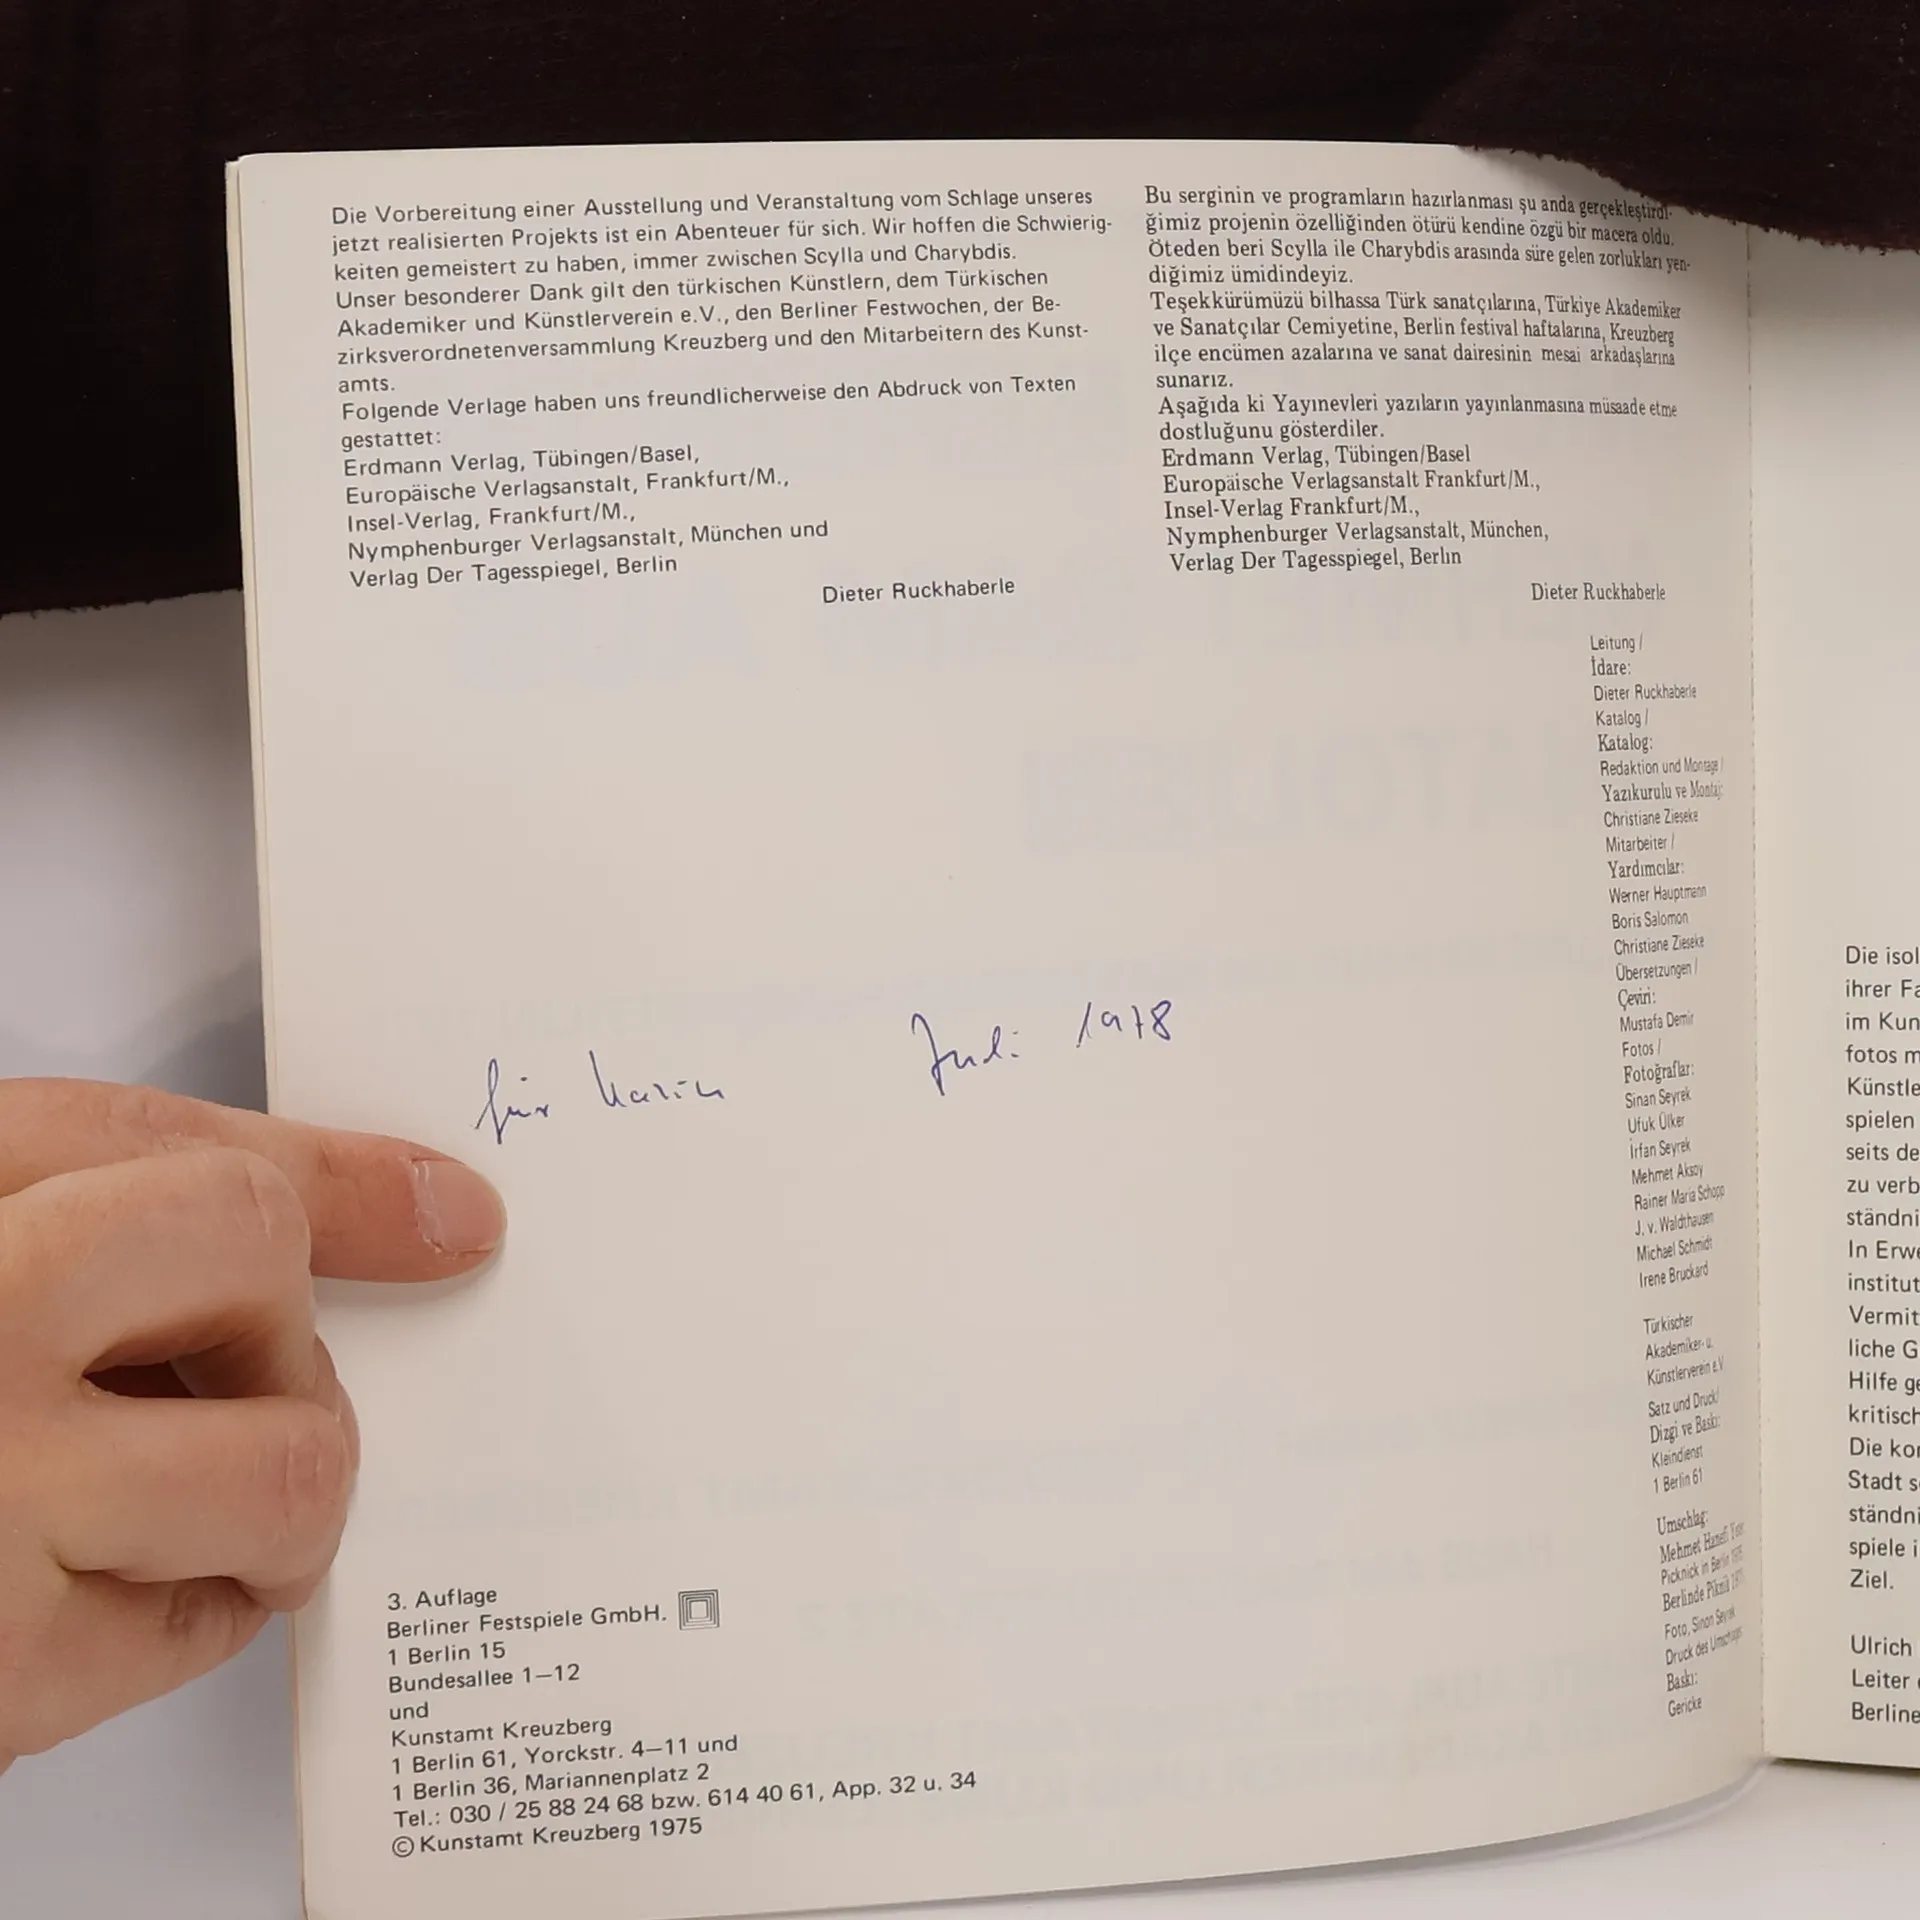 Die Vorbereitung einer Ausstellung und Veranstaltung vom Schlage unseres
jetzt realisierten Projekts ist ein Abenteuer für sich. Wir hoffen die Schwierig-
keiten gemeistert zu haben, immer zwischen Scylla und Charybdis.
Unser besonderer Dank gilt den türkischen Künstlern, dem Türkischen
Akademiker und Künstlerverein e.V., den Berliner Festwochen, der Be-
zirksverordnetenversammlung Kreuzberg und den Mitarbeitern des Kunst-
amts.
Folgende Verlage haben uns freundlicherweise den Abdruck von Texten
gestattet:
Erdmann Verlag, Tübingen/Basel,
Europäische Verlagsanstalt, Frankfurt/M.,
Insel-Verlag, Frankfurt/M.,
Nymphenburger Verlagsanstalt, München und
Verlag Der Tagesspiegel, Berlin
Dieter Ruckhaberle
Bu serginin ve programların hazırlanması şu anda gerçekleştirdi-
ğimiz projenin özelliğinden ötürü kendine özgü bir macera oldu.
Öteden beri Scylla ile Charybdis arasında süre gelen zorlukları yen-
diğimiz ümidindeyiz.
Teşekkürümüzü bilhassa Türk sanatçılarına, Türkiye Akademiker
ve Sanatçılar Cemiyetine, Berlin festival haftalarına, Kreuzberg
ilçe encümen azalarına ve sanat dairesinin mesai arkadaşlarına
sunarız.
Aşağıda ki Yayınevleri yazıların yayınlanmasına müsaade etme
dostluğunu gösterdiler.
Erdmann Verlag, Tübingen/Basel
Europäische Verlagsanstalt Frankfurt/M.,
Insel-Verlag Frankfurt/M.,
Nymphenburger Verlagsanstalt, München,
Verlag Der Tagesspiegel, Berlın
Dieter Ruckhaberle
Leitung /
İdare:
Dieter Ruckhaberle
Katalog /
Katalog:
Redaktion und Montage /
Yazıkurulu ve Montaj:
Christiane Zieseke
Mitarbeiter /
Yardımcılar:
Werner Hauptmann
Boris Salomon
Christiane Zieseke
Übersetzungen /
Çeviri:
Mustafa Demir
Fotos /
Fotoğraflar:
Sinan Seyrek
Ufuk Ülker
İrfan Seyrek
Mehmet Aksoy
Rainer Maria Schopp
J. v. Waldthausen
Michael Schmidt
Irene Bruckard
Türkischer
Akademiker- u.
Künstlerverein e.V
Satz und Druck/
Dizgi ve Baskı:
Kleindienst
1 Berlin 61
Umschlag:
Mehmet Hanefi
Picknick in Berlin
Berlinde Piknik
Foto, Sinan Seyrek
Druck des Umschlages
Baskı:
Gericke
für Karin Juli 1978
3. Auflage
Berliner Festspiele GmbH.
1 Berlin 15
Bundesallee 1—12
und
Kunstamt Kreuzberg
1 Berlin 61, Yorckstr. 4—11 und
1 Berlin 36, Mariannenplatz 2
Tel.: 030 / 25 88 24 68 bzw. 614 40 61, App. 32 u. 34
© Kunstamt Kreuzberg 1975
Die isol
ihrer Fa
im Kun
fotos m
Künstle
spielen
seits de
zu verb
ständni
In Erwe
institut
Vermit
liche G
Hilfe ge
kritisch
Die kor
Stadt s
ständni
spiele i
Ziel.
Ulrich
Leiter
Berline